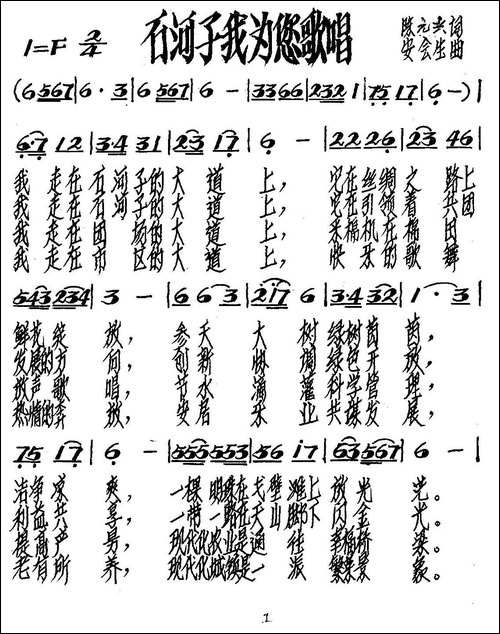 石河子我为您歌唱
1=F 2/4
陈元兴 词
安会生 曲
(6 567 | 6·3 | 6 567 | 6 - | 3366 | 232 1 | 75 17 | 6 -) |
6·7 12 | 3·4 31 | 23 17 | 6 - | 22 26 | 23 46 |
我 走在 石河 子的 大 道 上， 它在 丝绸 之 路上
我 走在 石河 子的 大 道 上， 它在 引领 着 兵团
我 走在 团 场的 大 道 上， 采棉 机在 棉 田
我 走在 市 区的 大 道 上， 快乐 的歌 舞
543 234 | 3 - | 6 6 3 | 2 17 6 | 3·4 32 | 1·3 |
鲜花 绽 放， 参天 大 树 绿树 茵 茵，
发展的方 向， 创新 协 调 绿色 开 放，
放声 歌 唱， 节水 滴 灌 科学 管 理，
热情的奔 放， 安居 乐 业 共谋 发 展，
75 17 | 6 - | 555 553 | 56 17 | 63 567 | 6 - |
洁净 凉 爽， 一棵 明珠在 戈壁 滩上 放光 芒。
利益 共 享， 一带 一路在 天山 脚下 闪金 光。
提高 产 量， 现代化 农业是 通 往 幸福桥 梁。
老有 所 养， 现代化 城镇是 一 派 繁荣景 象。
1